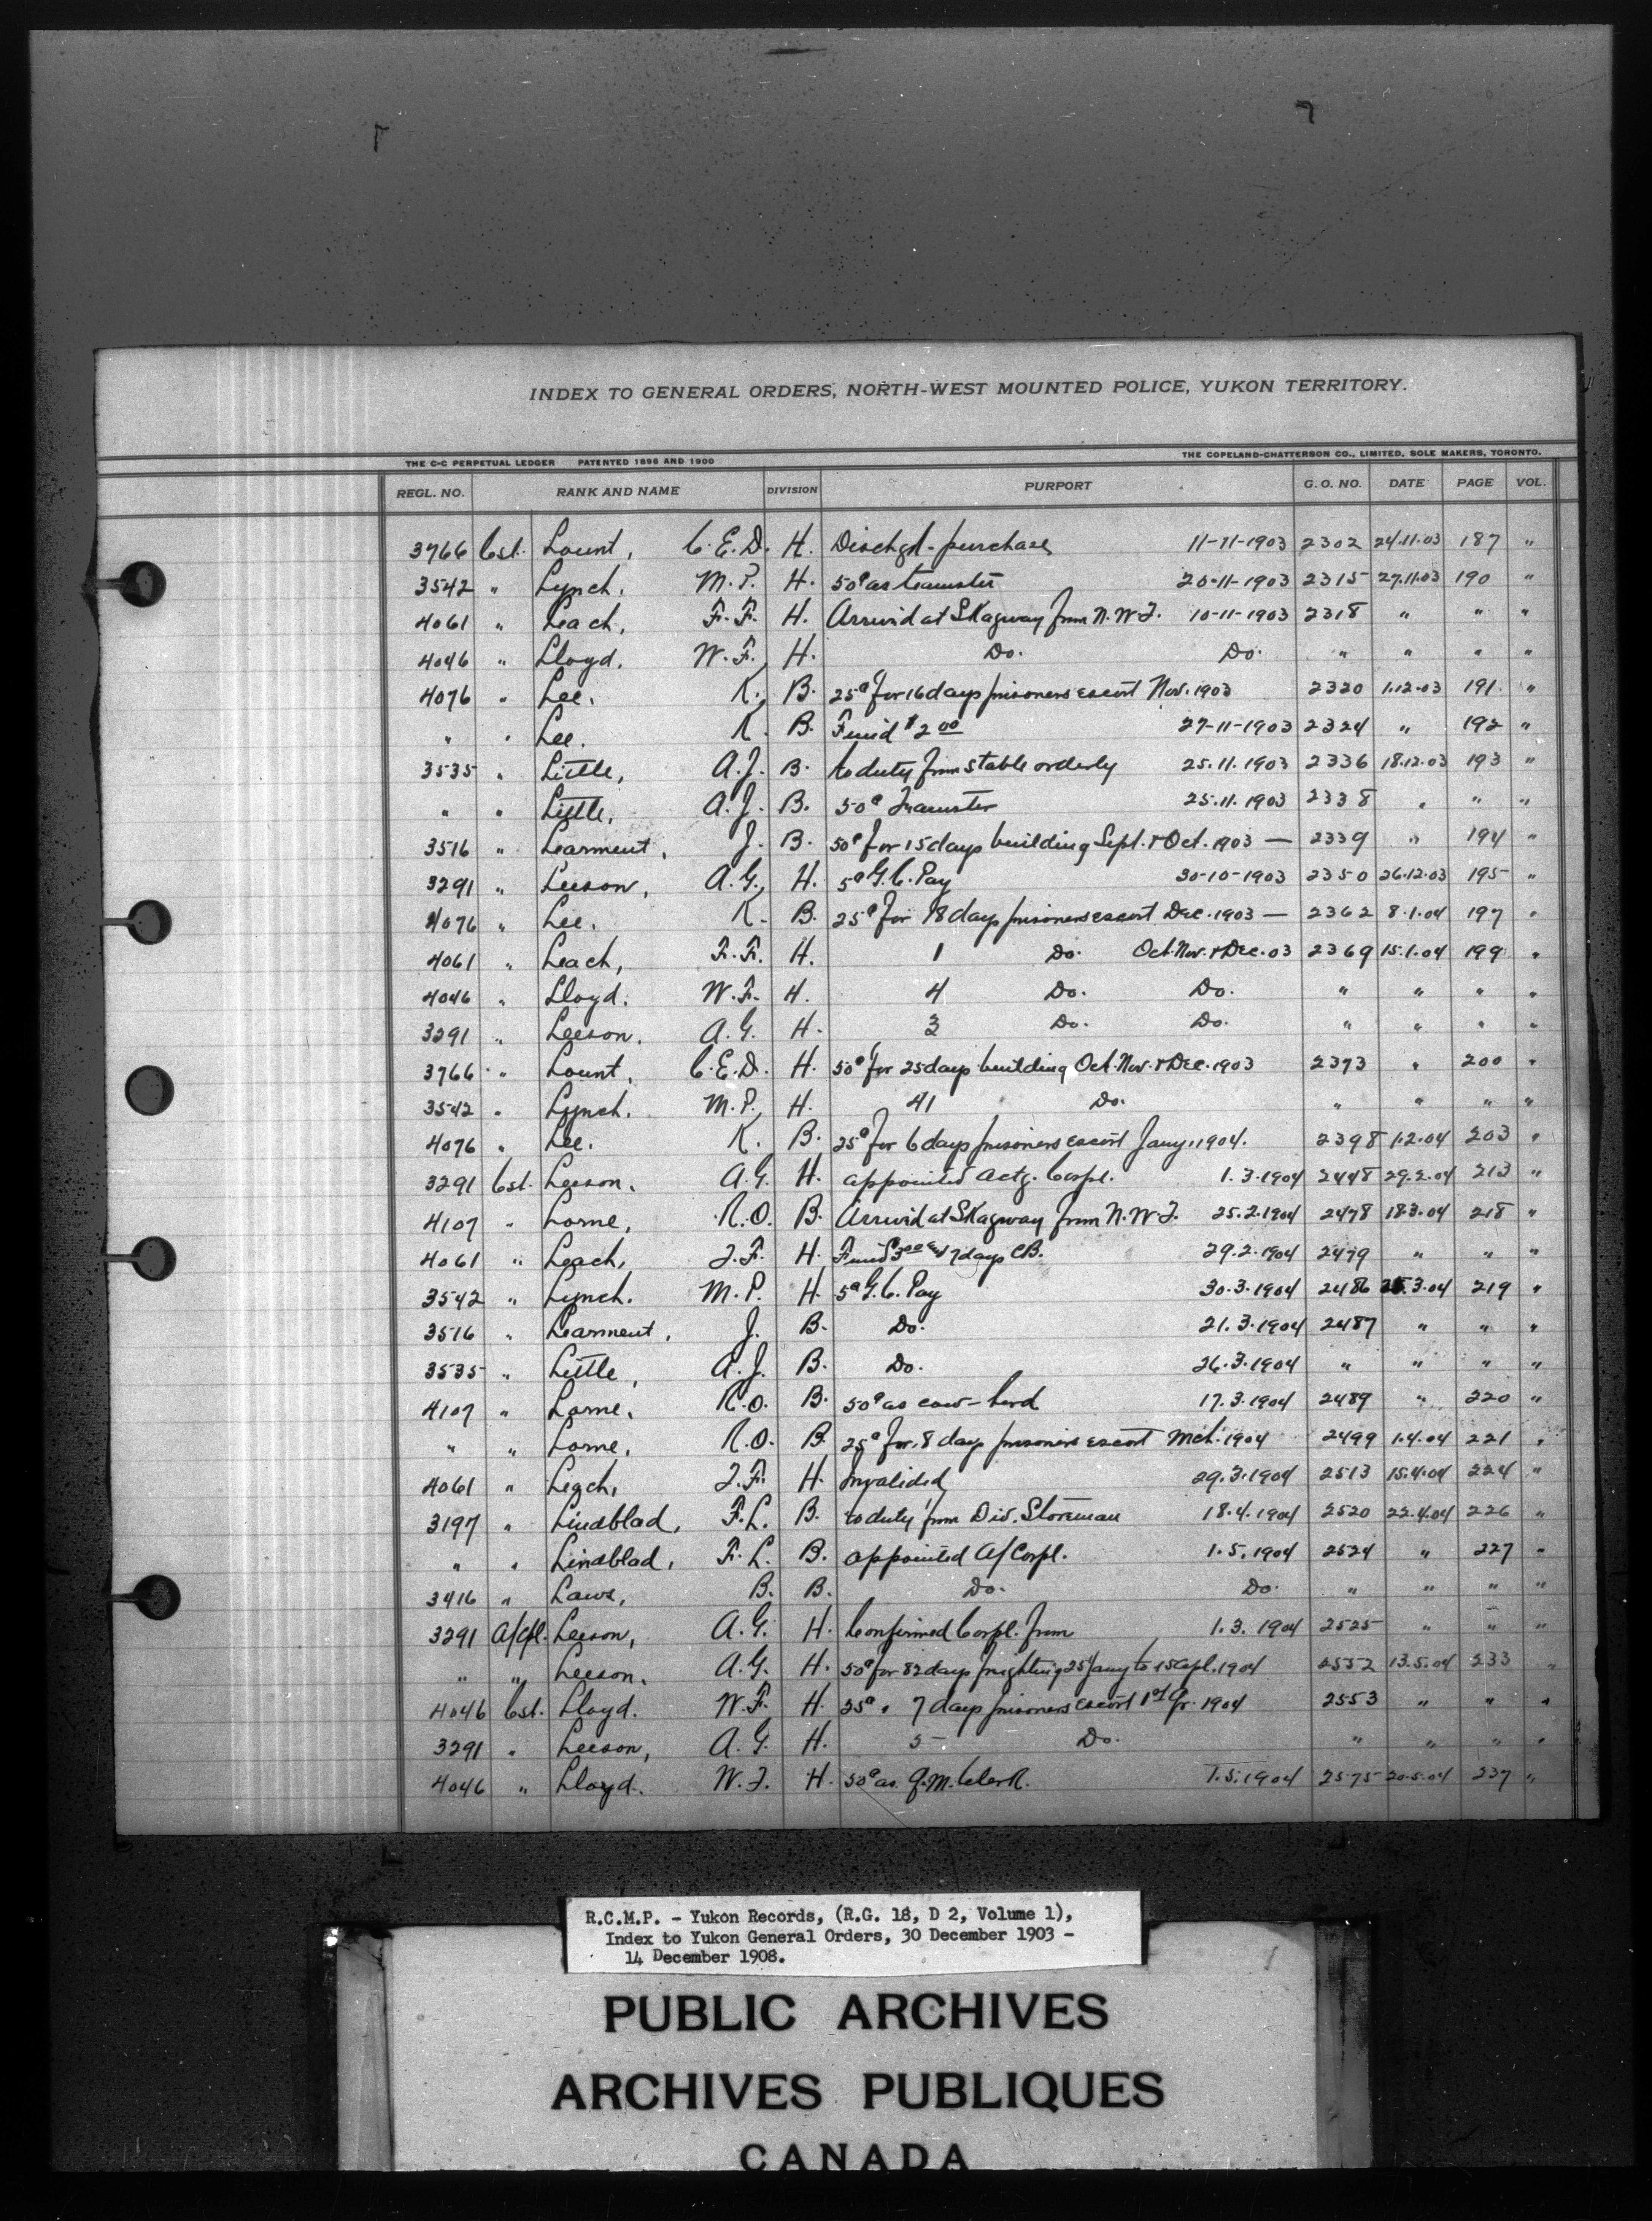 INDEX TO GENERAL ORDERS, NORTH-WEST MOUNTED POLICE, YUKON TERRITORY.
THE C-C PERPETUAL LEDGER PATENTED 1896 AND 1900 THE COPELAND-CHATTERSON CO., LIMITED, SOLE MAKERS, TORONTO.
REGL. NO. RANK AND NAME DIVISION PURPORT G. O. NO. DATE PAGE VOL.
3766 Cst. Lount, C.E.D. H. Dischgd - purchase 11-11-1903 2302 24.11.03 187 "
3542 " Lynch. M.P. H. 50¢ as teamster 20-11-1903 2315 27.11.03 190 "
4061 " Leach, F.F. H. Arrived at Skagway from N.W.T. 10-11-1903 2318 " " "
4046 " Lloyd. W.F. H. Do. Do. " " " "
4076 " Lee. K. B. 25¢ for 16 days prisoners escort Nov. 1903 2320 1.12.03 191 "
" " Lee. K. B. Fined $2 00 27-11-1903 2324 " 192 "
3535 " Little, A.J. B. to duty from stable orderly 25.11.1903 2336 18.12.03 193 "
" " Little, A.J. B. 50¢ Teamster 25.11.1903 2338 " " "
3516 " Learment, J. B. 50¢ for 15 days building Sept. & Oct. 1903 — 2339 " 194 "
3291 " Leeson, A.G. H. 5¢ G.C. Pay 30-10-1903 2350 26.12.03 195 "
4076 " Lee. K. B. 25¢ for 18 days prisoners escort Dec. 1903 — 2362 8.1.04 197 "
4061 " Leach, F.F. H. 1 Do. Oct. Nov. & Dec. 03 2369 15.1.04 199 "
4046 " Lloyd. W.F. H. 4 Do. Do. " " " "
3291 " Leeson. A.G. H. 3 Do. Do. " " " "
3766 " Lount, C.E.D. H. 50¢ for 25 days building Oct. Nov. & Dec. 1903 2373 " 200 "
3542 " Lynch. M.P. H. 41 Do. " " " "
4076 " Lee. K. B. 25¢ for 6 days prisoners escort Jany. 1904. 2398 1.2.04 203 "
3291 Cst. Leeson. A.G. H. appointed actg. Corpl. 1.3.1904 2448 29.2.04 213 "
4107 " Lorne, R.O. B. Arrived at Skagway from N.W.T. 25.2.1904 2478 18.3.04 218 "
4061 " Leach, J.F. H. Fined $3 00 and 7 days CB. 29.2.1904 2479 " " "
3542 " Lynch. M.P. H. 5¢ G.C. Pay 30.3.1904 2486 25.3.04 219 "
3516 " Learment, J. B. Do. 21.3.1904 2487 " " "
3535 " Little, A.J. B. Do. 26.3.1904 " " " "
4107 " Lorne. R.O. B. 50¢ as cow-herd 17.3.1904 2489 " 220 "
" " Lorne. R.O. B. 25¢ for 8 days prisoners escort Mch. 1904 2499 1.4.04 221 "
4061 " Leach, J.F. H. Invalided 29.3.1904 2513 15.4.04 224 "
3197 " Lindblad, F.L. B. to duty from Div. Storeman 18.4.1904 2520 22.4.04 226 "
" " Lindblad, F.L. B. appointed A/Corpl. 1.5.1904 2524 " 227 "
3416 " Laws, B. B. Do. Do. " " " "
3291 A/Cpl. Leeson, A.G. H. Confirmed Corpl. from 1.3.1904 2525 " " "
" " Leeson. A.G. H. 50¢ for 82 days freighting 25 Jany to 15 Apl. 1904 2552 13.5.04 233 "
4046 Cst. Lloyd. W.F. H. 25¢ " 7 days prisoners escort 1st Qr. 1904 2553 " " "
3291 " Leeson, A.G. H. 5 Do. " " " "
4046 " Lloyd. W.F. H. 50¢ as Q.M. Clerk. 1.5.1904 2575 20.5.04 237 "
R.C.M.P. - Yukon Records, (R.G. 18, D 2, Volume 1),
Index to Yukon General Orders, 30 December 1903 -
14 December 1908.
PUBLIC ARCHIVES
ARCHIVES PUBLIQUES
CANADA